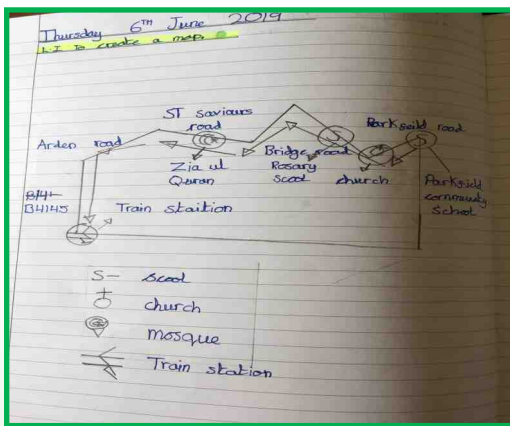 Thursday 6TH June 2019
L.I To create a map.
ST saviours road
Parkseild road
Arden road
Bridge road
Zia ul Quran
Rosary Scool
church
Parksield community School
B4145
Train staition
S- scool
church
mosque
Train station